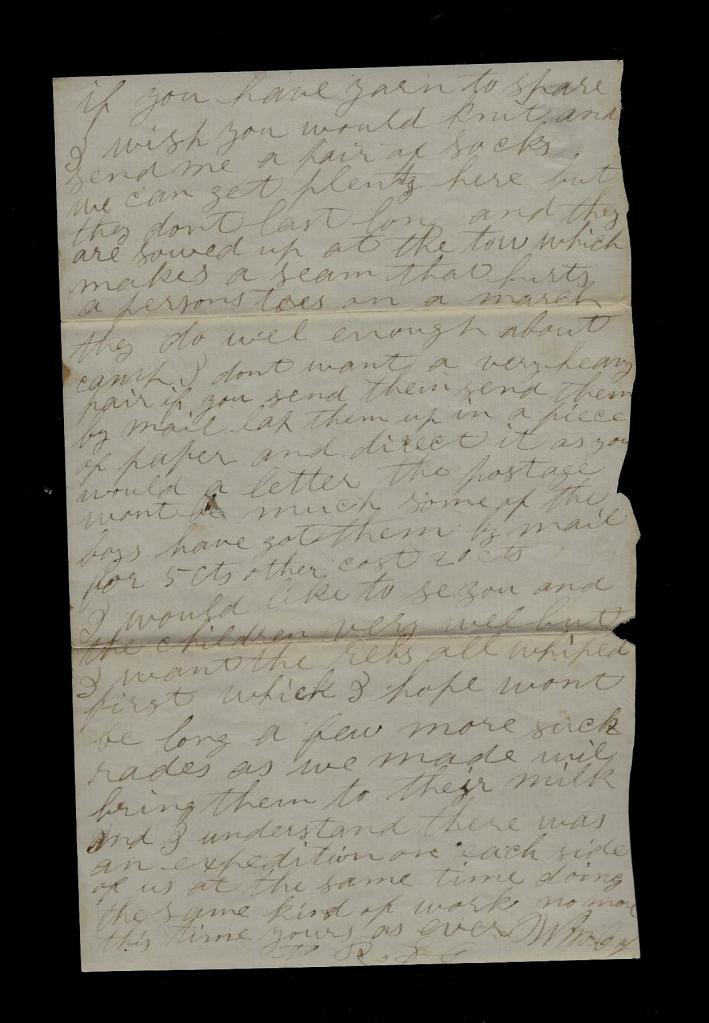 if you have yarn to spare
I wish you would knit and
send me a pair of socks
we can get plenty here but
they dont last long and they
are sowed up at the tow which
makes a seam that hurts
a persons toes on a march
they do wel enough about
camp I dont want a very heavy
pair if you send them send them
by mail lap them up in a piece
of paper and direct it as you
would a letter the postage
wont be much some of the
boys have got them by mail
for 5 cts other cost 20 cts
I would like to se you and
the children very wel but
I want the rebs all whiped
first which I hope wont
be long a few more such
rades as we made wil
bring them to their milk
and I understand there was
an expedition on each side
of us at the same time doing
the same kind of work no more
this time yours as ever
to